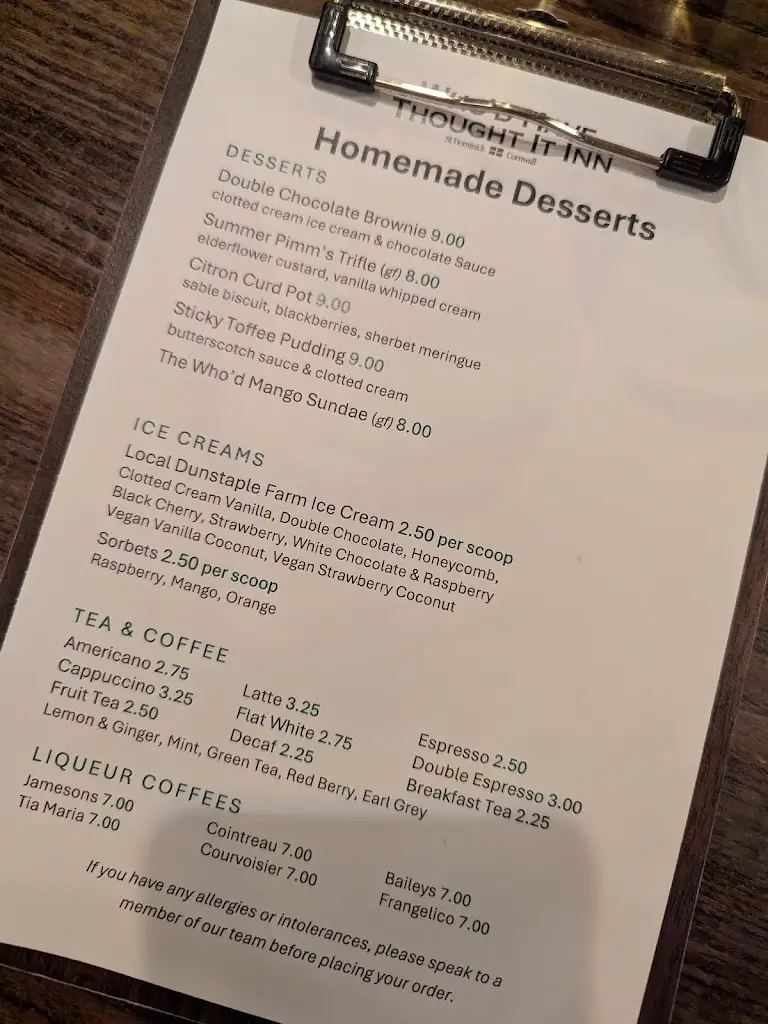 THOUGHT IT INN
St Dominick Cornwall
Homemade Desserts
DESSERTS
Double Chocolate Brownie 9.00
clotted cream ice cream & chocolate Sauce
Summer Pimm's Trifle (gf) 8.00
elderflower custard, vanilla whipped cream
Citron Curd Pot 9.00
sable biscuit, blackberries, sherbet meringue
Sticky Toffee Pudding 9.00
butterscotch sauce & clotted cream
The Who'd Mango Sundae (gf) 8.00
ICE CREAMS
Local Dunstaple Farm Ice Cream 2.50 per scoop
Clotted Cream Vanilla, Double Chocolate, Honeycomb,
Black Cherry, Strawberry, White Chocolate & Raspberry
Vegan Vanilla Coconut, Vegan Strawberry Coconut
Sorbets 2.50 per scoop
Raspberry, Mango, Orange
TEA & COFFEE
Americano 2.75 Latte 3.25 Espresso 2.50
Cappuccino 3.25 Flat White 2.75 Double Espresso 3.00
Fruit Tea 2.50 Decaf 2.25 Breakfast Tea 2.25
Lemon & Ginger, Mint, Green Tea, Red Berry, Earl Grey
LIQUEUR COFFEES
Jamesons 7.00 Cointreau 7.00 Baileys 7.00
Tia Maria 7.00 Courvoisier 7.00 Frangelico 7.00
If you have any allergies or intolerances, please speak to a
member of our team before placing your order.